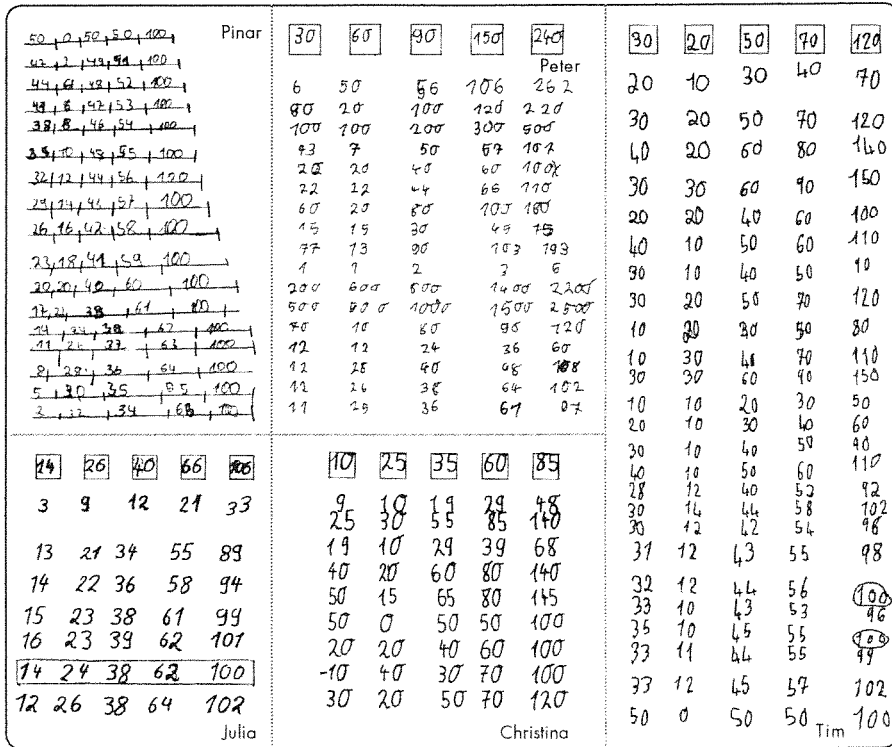 Pinar
50 0 50 50 100
47 2 49 51 100
44 6 48 52 100
41 6 47 53 100
38 8 46 54 100
35 10 45 55 100
32 12 44 56 120
29 14 43 57 100
26 16 42 58 100
23 18 41 59 100
20 20 40 60 100
17 22 39 61 100
14 24 38 62 100
11 26 37 63 100
8 28 36 64 100
5 30 35 65 100
2 32 34 66 100
30 60 90 150 240
Peter
6 50 56 106 262
80 20 100 120 220
100 100 200 300 500
43 7 50 57 107
20 20 40 60 100
22 22 44 66 110
60 20 80 100 180
15 15 30 45 75
77 13 90 103 193
1 1 2 3 5
200 600 800 1400 2200
500 500 1000 1500 2500
70 10 80 90 120
12 12 24 36 60
12 28 40 68 108
12 26 38 64 102
11 25 36 61 97
30 20 50 70 120
20 10 30 40 70
30 20 50 70 120
40 20 60 80 140
30 30 60 90 150
20 20 40 60 100
40 10 50 60 110
30 10 40 50 90
30 20 50 70 120
10 20 30 50 80
10 30 40 70 110
30 30 60 90 150
10 10 20 30 50
20 10 30 40 60
30 10 40 50 90
40 10 50 60 110
28 12 40 52 92
30 14 44 58 102
30 12 42 54 96
31 12 43 55 98
32 12 44 56 100
33 10 43 53 96
35 10 45 55 100
33 11 44 55 99
33 12 45 57 102
50 0 50 50 100
Tim
14 26 40 66 106
3 9 12 21 33
13 21 34 55 89
14 22 36 58 94
15 23 38 61 99
16 23 39 62 101
14 24 38 62 100
12 26 38 64 102
Julia
10 25 35 60 85
9 10 19 29 48
25 30 55 85 140
19 10 29 39 68
40 20 60 80 140
50 15 65 80 145
50 0 50 50 100
20 20 40 60 100
-10 40 30 70 100
30 20 50 70 120
Christina